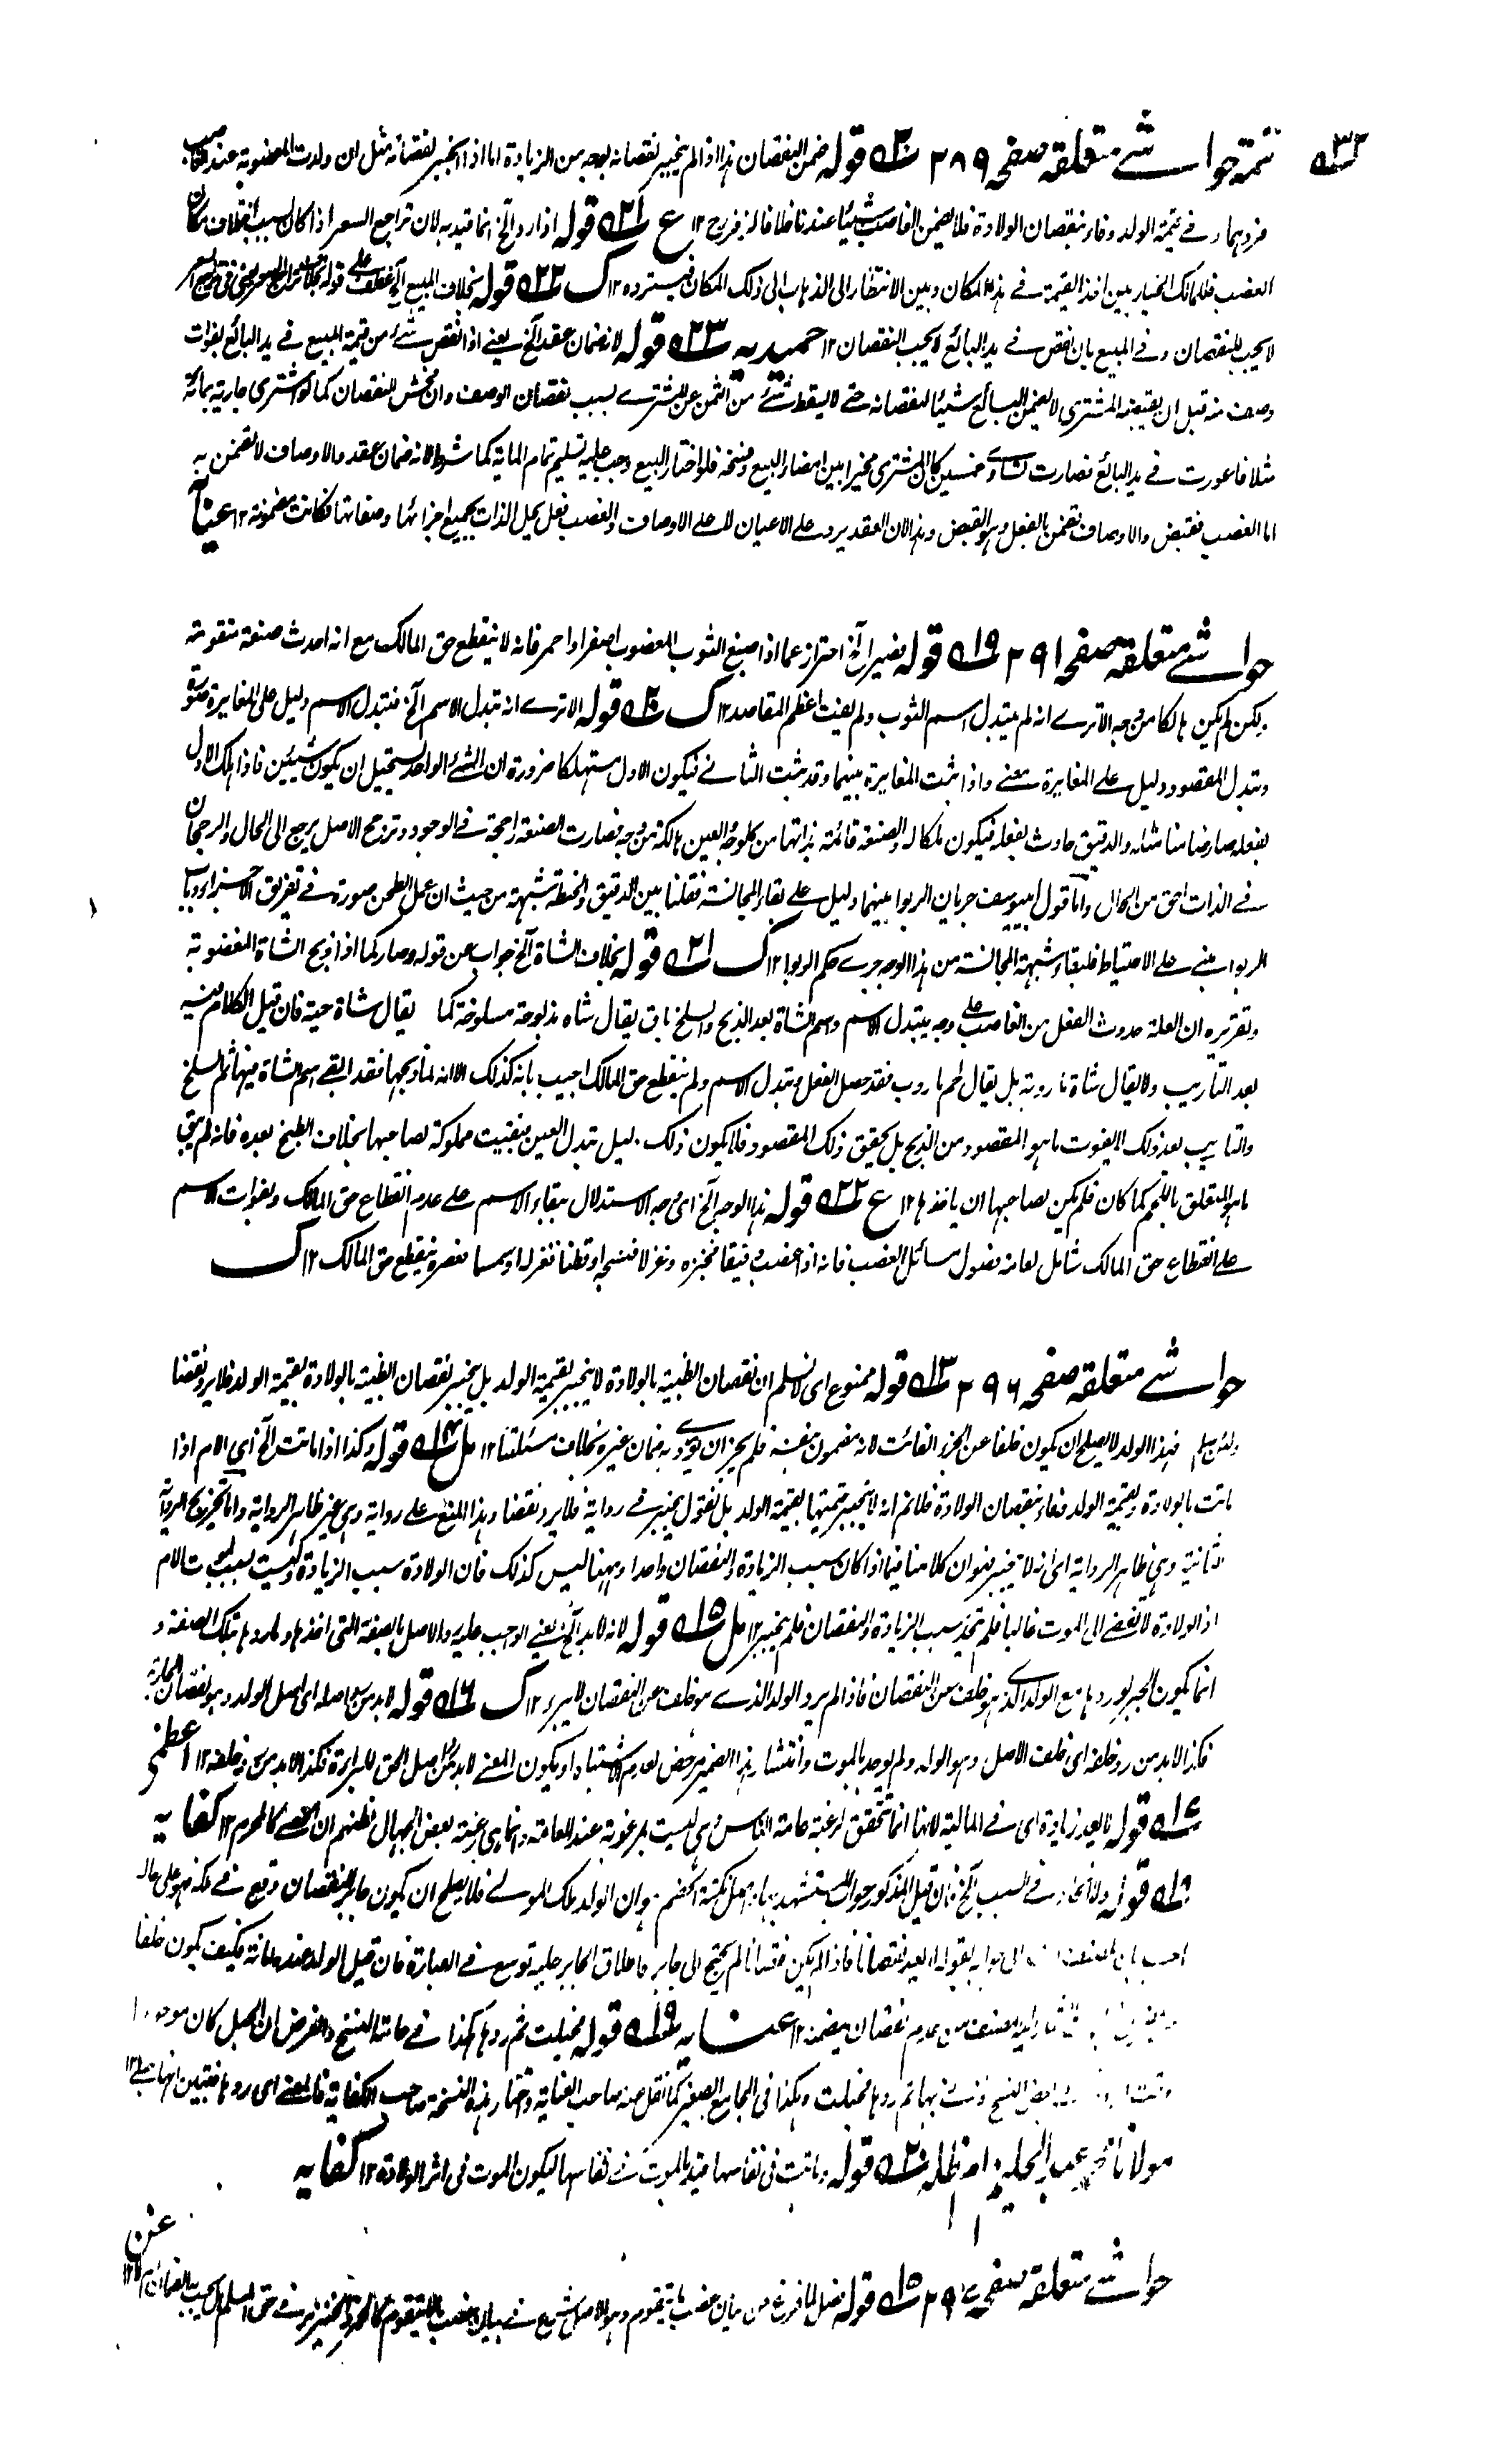 تتمة حواشے متعلقہ صفحہ ٢٨٩ ٢٠ قوله ضمن النقصان هذا اذا لم ينجبر نقصانه بوجه من الزيادة اما اذا انجبر نقصانه مثل ان ولدت المغصوبة عند الغاصب
فردهما و فے قيمة الولد وفاء بنقصان الولادة فلا يضمن الغاصب شيئا عندنا خلافا لزفر رح ١٢ ع ٢١ قوله اذا رد الخ انما قيد به لان تراجع السعر اذا كان بسبب اختلاف مكان
الغصب فللمالك الخيار بين اخذ القيمة فے هذا المكان وبين الانتظار الى الذهاب الى ذلك المكان فيسترده ١٢ ك ٢٢ قوله بخلاف المبيع الخ عطف على قوله
لا يجب النقصان وفے المبيع بان انتقص فے يد البائع لا يجب النقصان ١٢ حميديه ٢٣ قوله لانه ضمان عقد الخ يعنے اذا انتقص شئ من قيمة المبيع فے يد البائع بفوات
وصف منه قبل ان يقبضه المشتری لا يضمن البائع شيئا لنقصانه حتے لا يسقط شئ من الثمن عن المشترے بسبب نقصان الوصف وان فحش النقصان كما لو اشتری جارية بمائة
مثلا فاعورت فے يد البائع فصارت تساوے خمسين كان المشتری مخيرا بين امضاء البيع وفسخه فلو اختار البيع وجب عليه تسليم تمام المائة كما شرط لانه ضمان عقد والاوصاف لا تضمن به
اما الغصب فقبض والاوصاف تضمن بالفعل وهو القبض وهذا لان العقد يرد على الاعيان لا على الاوصاف والغصب فعل يحل الذات بجميع اجزائها وصفاتها فكانت مضمونة ١٢ عيني
حواشے متعلقہ صفحہ ٢٩١ ١٩ قوله يصير الخ احتراز عما اذا صبغ الثوب المغصوب اصفر او احمر فانه لا ينقطع حق المالك مع انه احدث صنعة متقومة
لكن لم يكن هالكا من وجه الا ترے انه لم يتبدل اسم الثوب ولم يفت اعظم المقاصد ١٢ ك ٢٠ قوله الا ترے انه تبدل الاسم الخ فتبدل الاسم دليل على المغايرة صورة
وتبدل المقصود دليل على المغايرة معنے واذا ثبت المغايرة بينهما وقد ثبت الثانے فيكون الاول مستهلكا ضرورة ان الشئ الواحد يستحيل ان يكون شيئين فاذا هلك الاول
بفعله صار ضامنا مثله والدقيق حادث بفعله فيكون ملكا له والصنعة قائمة بذاتها من كل وجه والعين هالكة من وجه فصارت الصنعة راجحة فے الوجود وترجح الاصل يرجع الى الحال والرجحان
فے الذات احق من الحال واما قول ابي يوسف جريان الربوا بينهما دليل على بقاء المجانسة فقلنا بين الدقيق والحنطة شبهة من حيث ان عمل الطحن صورة فے تفريق الاجزاء وباب
الربوا مبنے على الاحتياط فلبقاء شبهة المجانسة من هذا الوجه جرے حكم الربوا ١٢ ك ٢١ قوله بخلاف الشاة الخ جواب عن قوله وصار كما اذا ذبح الشاة المغصوبة
وتقريره ان العلة حدوث الفعل من الغاصب على وجه يتبدل الاسم واسم الشاة بعد الذبح والسلخ باق يقال شاه مذبوحة مسلوخة كما يقال شاة حية فان قيل الكلام فيه
بعد التأريب ولا يقال شاة ماروبة بل يقال لحم ماروب فقد حصل الفعل وتبدل الاسم ولم ينقطع حق المالك اجيب بانه كذلك الا انه لما ذبحها فقد ابقے اسم الشاة فيها ثم السلخ
والتأريب بعد ذلك لا يفوت ما هو المقصود من الذبح بل يحقق ذلك المقصود فلا يكون ذلك دليل تبدل العين فبقيت مملوكة لصاحبها بخلاف الطبخ بعده فانه لم يبق
ما هو المتعلق باللحم كما كان فلم يكن لصاحبها ان ياخذها ١٢ ع ٢٢ قوله هذا الوجه الخ ای وجه الاستدلال ببقاء الاسم على عدم انقطاع حق المالك وبفوات الاسم
على انقطاع حق المالك شامل لعامة فصول مسائل الغصب فانه اذا غصب دقيقا فخبزه وغزلا فنسجه او قطنا فغزله او سمسما فعصره ينقطع حق المالك ١٢ ك
حواشے متعلقہ صفحہ ٢٩٦ ١٣ قوله ممنوع ای لا نسلم ان نقصان الظبية بالولادة لا ينجبر بقيمة الولد بل ينجبر نقصان الظبية بالولادة بقيمة الولد فلا يرد نقضا
ولئن سلم فهذا الولد لا يصلح ان يكون خلفا عن الجزء الفائت لانه مضمون بنفسه فلم يجز ان يؤدے به ضمان غيره بخلاف مسئلتنا ١٢ مل ١٤ قوله وكذا اذا ماتت الخ ای الام اذا
ماتت بالولادة وبقيمة الولد وفاء بنقصان الولادة فلا نم انه لا ينجبر قيمتها بقيمة الولد بل نقول ينجبر فے رواية فلا يرد نقضا وهذا المنع على رواية وهی غير ظاهر الرواية واما تخريج الرواية
الثانية وهي ظاهر الرواية ای انه لا تنجبر فهو ان كلامنا فيما اذا كان سبب الزيادة والنقصان واحدا وههنا ليس كذلك فان الولادة سبب الزيادة وليست بسبب لموت الام
اذ الولادة لا تفضے الى الموت غالبا فلم يتحد سبب الزيادة والنقصان فلم ينجبر ١٢ مل ١٥ قوله لانه لا بد الخ يعنے الواجب عليه رد الاصل بالصفة التی اخذها ولم يردها بتلك الصفة و
انما يكون الجبر بردها مع الولد الذے هو خلف عن النقصان فاذا لم يرد الولد الذے هو خلف عن النقصان لا يبرء ١٢ ك ١٦ قوله لا بد من رد اصله ای اصل الولد وهو نقصان الجارية
فكذا لا بد من رد خلفه ای خلف الاصل وهو الولد ولم يوجد بالموت وانتشار هذا الضمير مرخص لعدم الاشتباه او يكون المعنے لا بد من رد اصل الحق للبراءة فكذا لا بد من رد خلفه ١٢ اعظمي
١٧ قوله لا يعد زيادة ای فے المالية لانها انما تتحقق لرغبة عامة الناس وهی ليست بمرغوبة عند العامة وانما هی رغبة بعض الجهال لظنهم ان الخصے كالمحرم ١٢ كفايه
١٨ قوله ولا اتحاد فے السبب الخ فان قيل المذكور جواب المستشهد بها اصل نكتة الخصم وهو ان الولد ملك المولے فلا يصلح ان يكون جابرا لنقصان وقع فے ملكه فهو على حاله
اجيب بان المصنف الى جوابه بقوله لا يعد نقصانا فاذا لم يكن نقصانا لم يحتج الى جابر فاطلاق الجابر عليه توسع فے العبارة فان قيل الولد عنده امانة فكيف يكون خلفا
المصنف من عدم نقصان يضمنه ١٢ عنايه ١٩ قوله فحبلت ثم ردها هكذا فے عامة النسخ والغرض ان الحبل كان موجودا
بعض النسخ فزنے بها ثم ردها فحبلت وهكذا فی الجامع الصغير كما نقل عنه صاحب العناية واختار هذه النسخة صاحب الكفاية فالمعنے ای ردها فتبين انها حبلے ١٢
مولانا محمد عبد الحليم دام ظله ٢٠ قوله وماتت فی نفاسها قيد بالموت فے نفاسها ليكون الموت فی اثر الولادة ١٢ كفايه
حواشے متعلقہ صفحہ ٢٩٧ ١٥ قوله فصل لما فرغ من بيان غصب ما يتقوم وهو الاصل شرع فے بيان غصب ما لا يتقوم كالخمر والخنزير فے حق المسلم